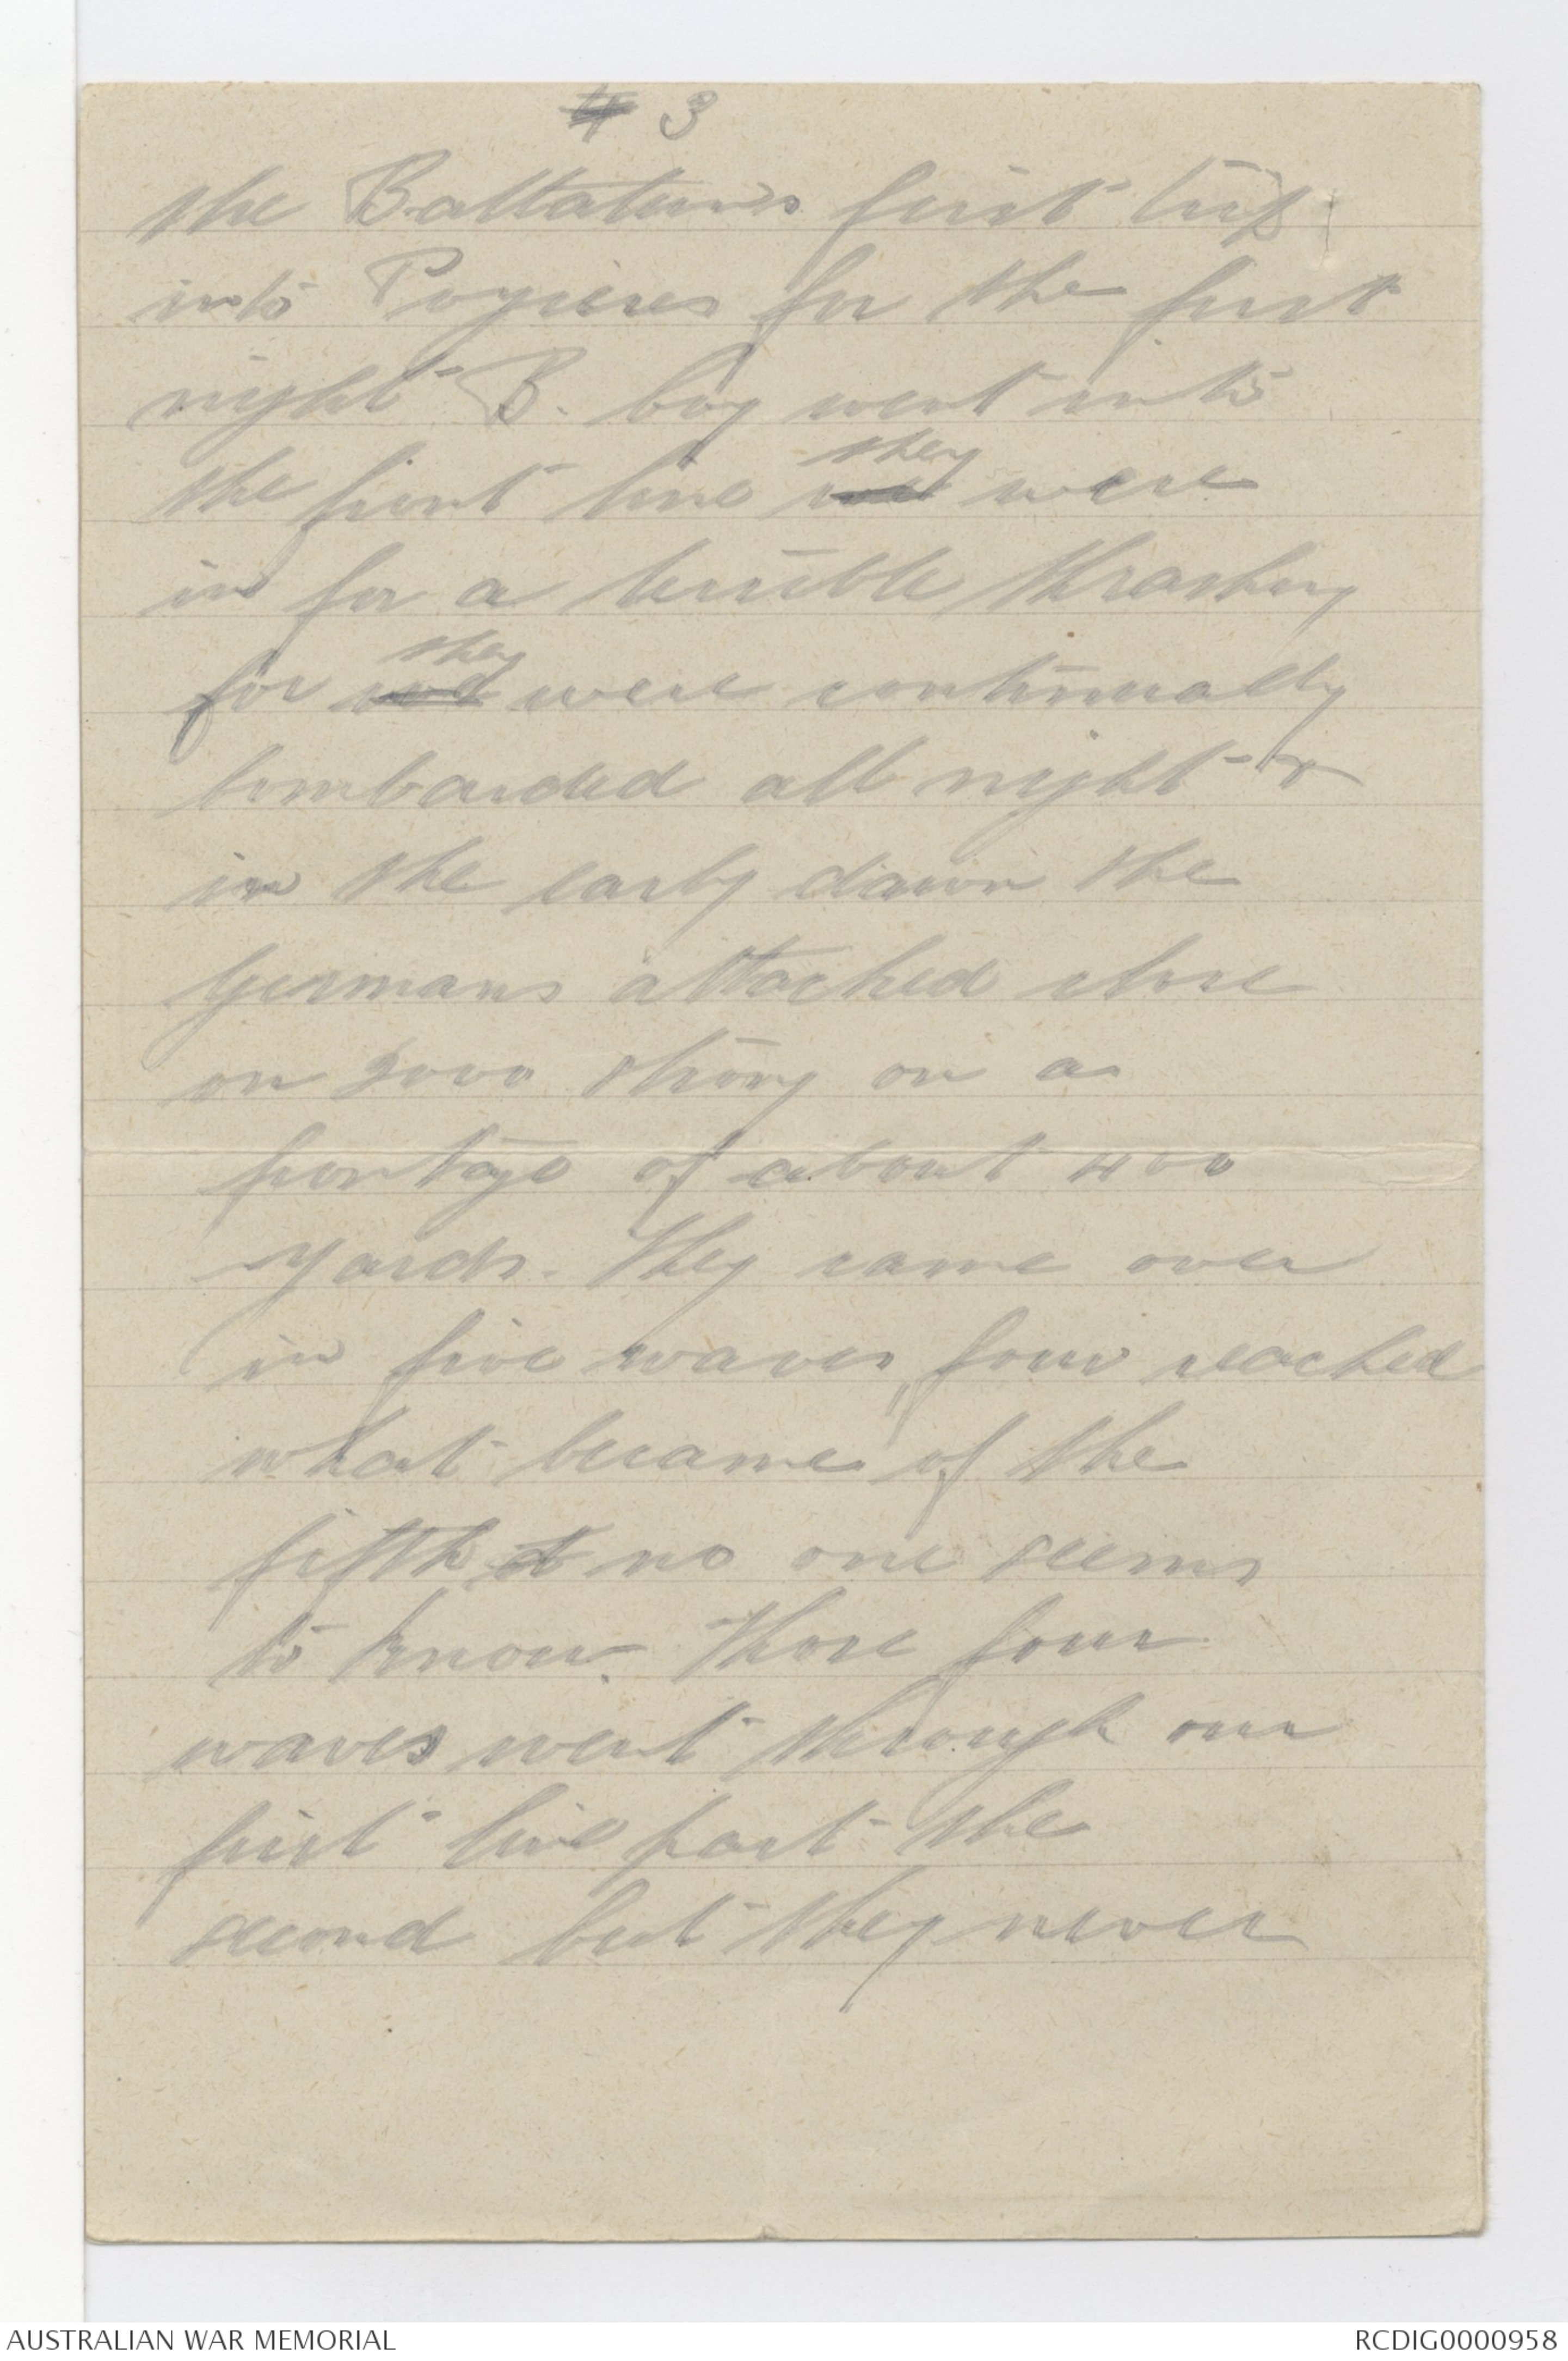 4 3
the Battalions first trip
into Pozieres for the first
night B. Coy went into
they
the front line we were
in for a terrible thrashing
they
for we were continually
bombarded all night &
in the early dawn the
Germans attacked close
on 2000 strong on a
frontage of about 400
yards. They came over
in five waves, four reached
what became of the
fifth no one seems
to know. Those four
waves went through our
first line past the
second but they never
AUSTRALIAN WAR MEMORIAL
RCDIG0000958